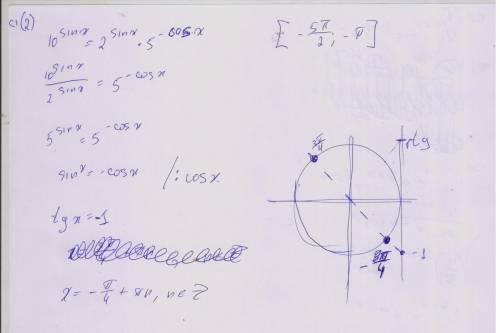 C1(2)
10^sinx = 2^sinx · 5^-cosx [-5π/2; -π]
10^sinx / 2^sinx = 5^-cosx
5^sinx = 5^-cosx
sinx = -cosx /: cosx
tg x = -1
x = -π/4 + πn, n∈Z
tg
-1